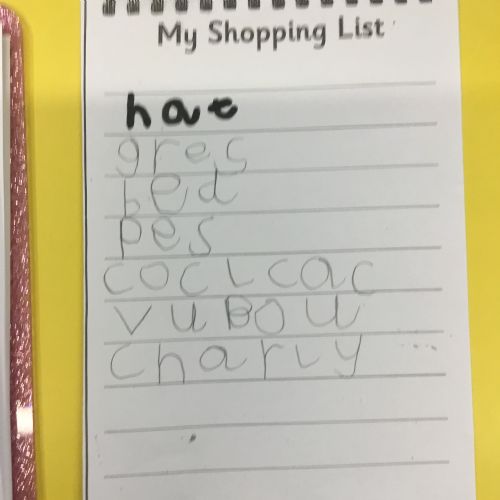 My Shopping List
hat
gres
bed
pes
coclcac
vuBou
charly